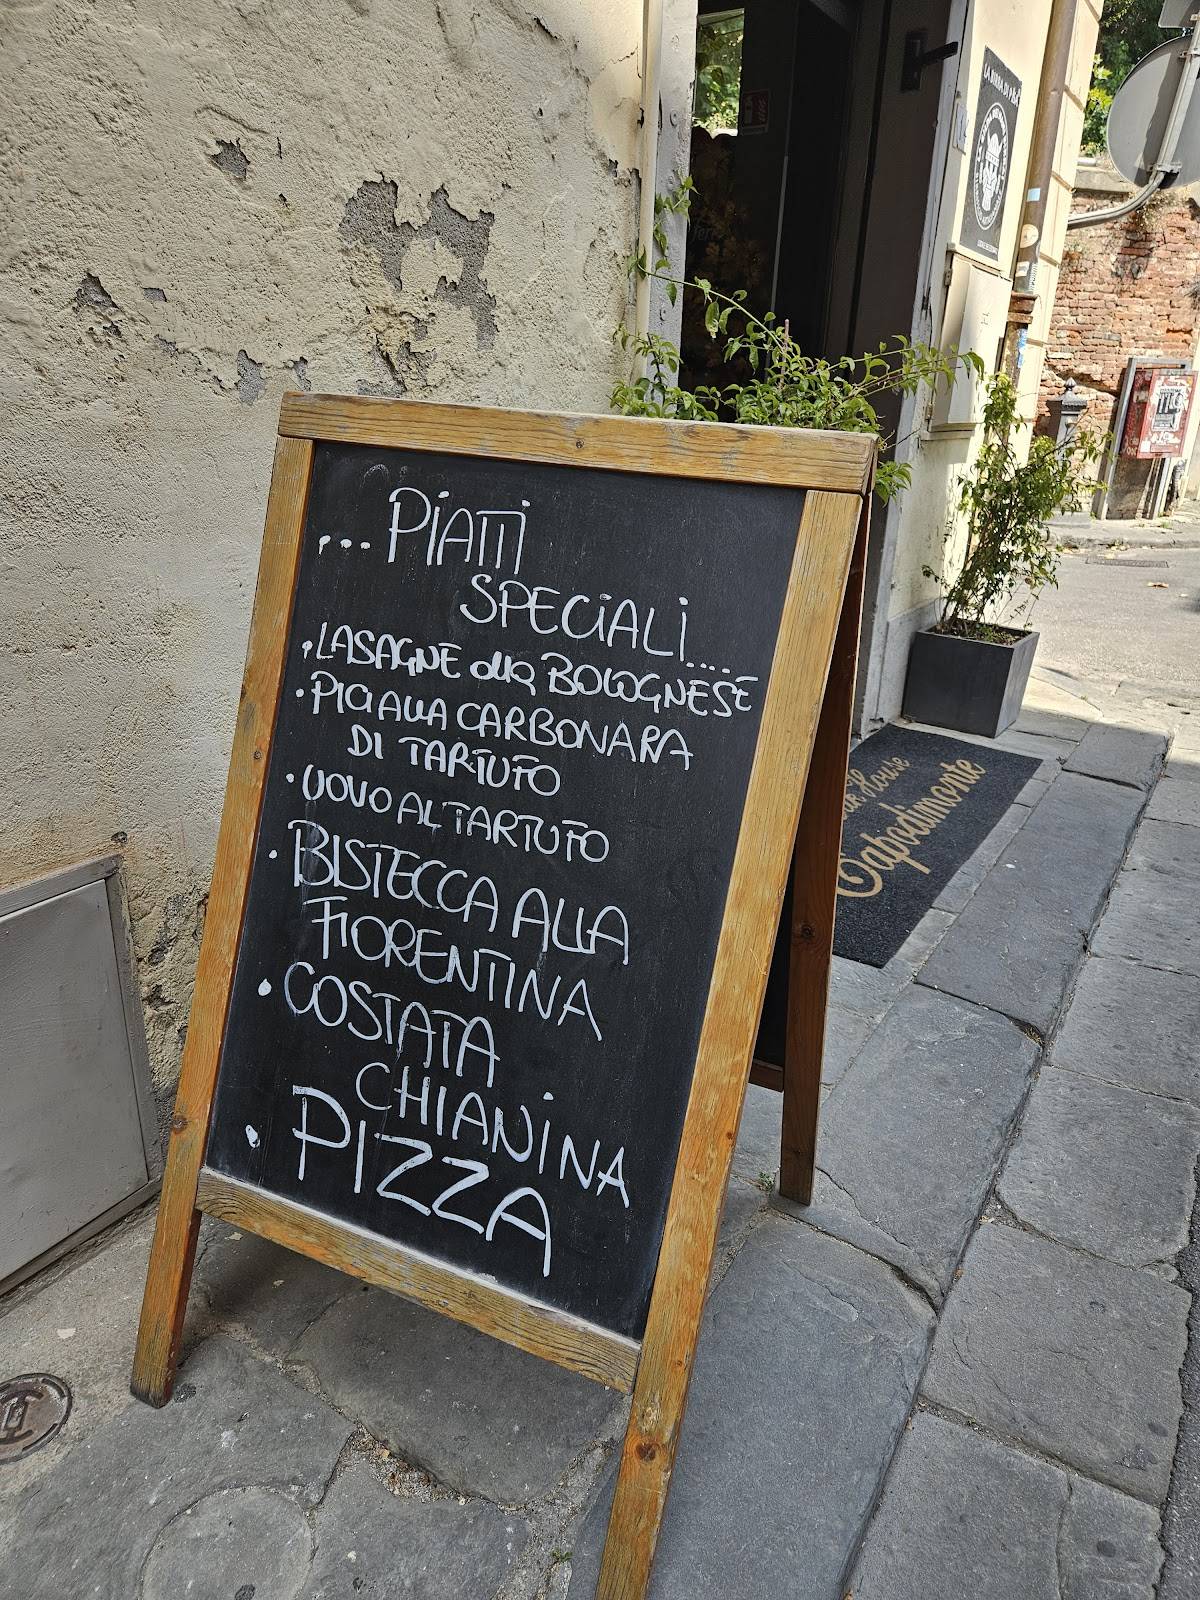 ... PiATTi
SPECiALi....
• LASAGNE alla BOLOGNESE
• PICI ALLA CARBONARA
DI TARTUFO
• UOVO AL TARTUFO
• BISTECCA ALLA
FIORENTINA
• COSTATA
CHIANiNA
• PIZZA
House
Capodimonte
LA BIRRA DI